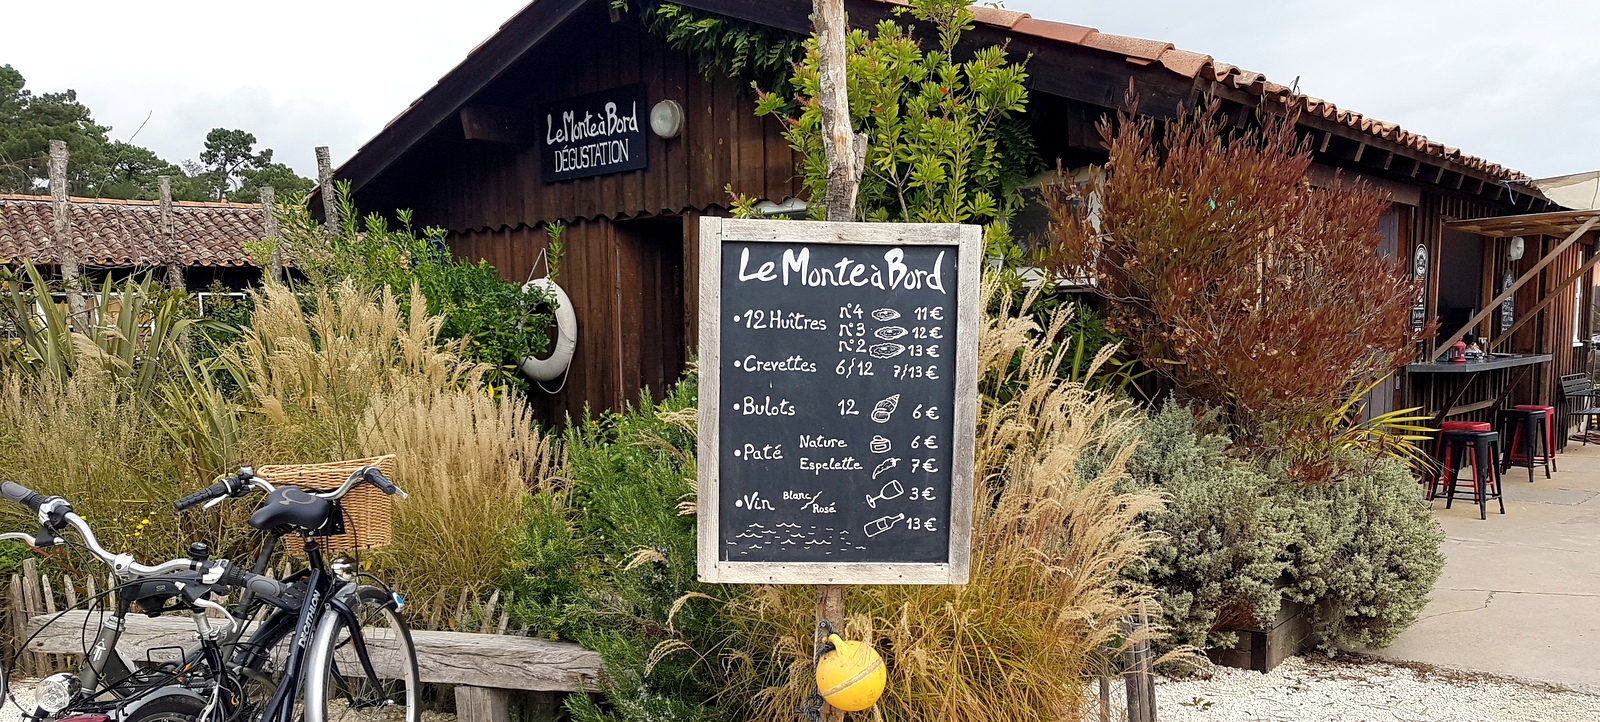 Le Monte à Bord
DÉGUSTATION
Le Monte à Bord
• 12 Huîtres n°4 11 €
n°3 12 €
n°2 13 €
• Crevettes 6/12 7/13 €
• Bulots 12 6 €
• Paté Nature 6 €
Espelette 7 €
• Vin Blanc/Rosé 3 €
13 €
DECATHLON